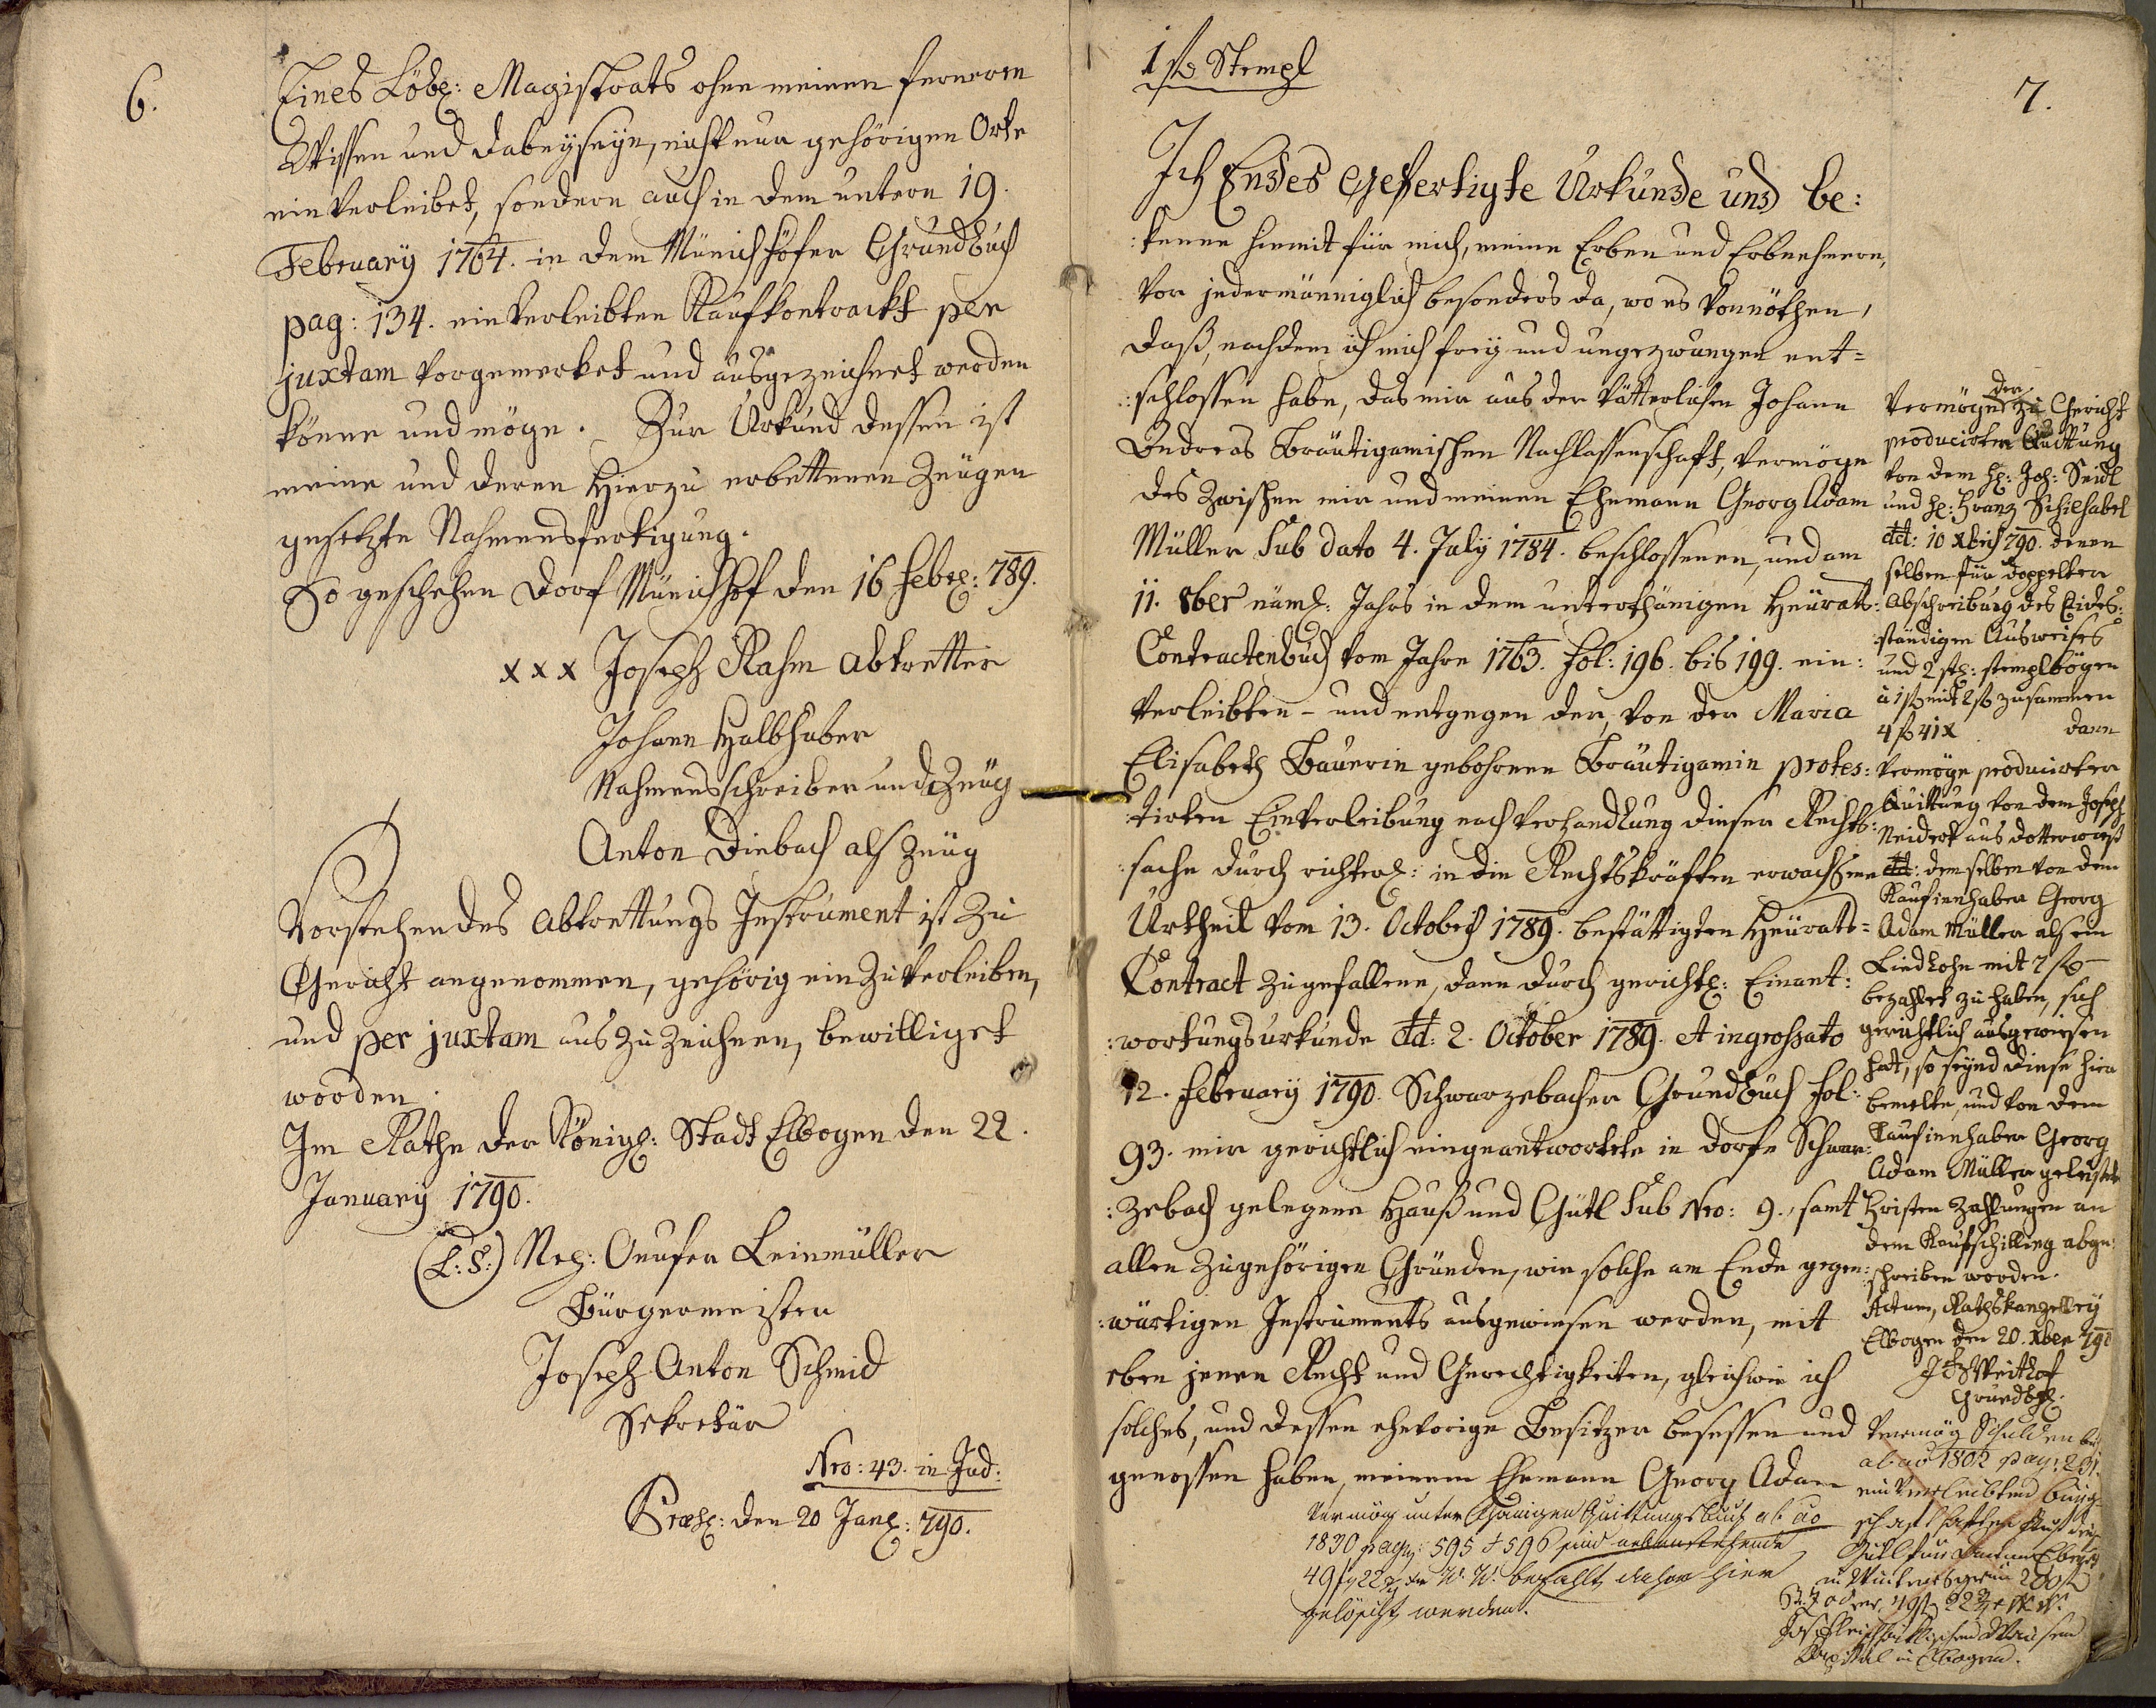 6.
Eines Löbl: Magistrats ohne meinen ferneren
Wissen und Dabeyseyn, nicht nur gehörigen Orts
einverleibet, sondern auch in dem untern 19.
February 1764. in dem Münichhöfer Grundbuch
pag: 134. einverleibten Kaufkontrackt per
juxtam vorgemerket und ausgezeichnet werden
könne und möge. Zur Urkund dessen ist
meine und deren Hierzu erbettenen Zeugen
gesetzte Nahmensfertigung.
So geschehen Dorf Münichhof den 16 Febr: 789.
x x x Joseph Rahm abtretter
Johann Halbhuber
Nahmensschreiber und Zeug
Anton Diebach als Zeug
Vorstehendes abtrettungs Instrument ist zu
Gericht angenommen, gehörig ein zu verleiben,
und per juxtam aus zu zeichnen, bewilliget
worden.
Im Rathe der Königl: Stadt Elbogen den 22.
January 1790.
(L: S:) Onufer Leinmüller
Bürgermeister
Joseph Anton Schmid
Sekretär
Nro: 43. in Jud:
Præs: den 20 Jan: 790.
1 f Stempl
7.
Ich Endes Gefertigte Urkunde und be:
:kenne hiemit für mich, meine Erben und Erbnehmern,
vor jedermänniglich besonders da, wo es vonnöthen,
daß, nachdem ich mich frey und ungezwungen ent=
:schlossen habe, das mir aus der vätterlichen Johann
Andreas Bräutigamischen Nachlassenschaft, vermöge
des zwischen mir und meinen Ehemann Georg Adam
Müller Sub dato 4. July 1784. beschlossenen, und am
11. 8ber näml: Jahrs in dem unterthänigen Heurats:
Contractenbuch vom Jahre 1763. fol: 196. bis 199. ein:
verleibten - und entgegen der, von der Maria
Elisabeth Bauerin gebohrene Bräutigamin protes:
:tirten Einverleibung nach Verhandlung dieser Rechts:
:sache durch richterl: in die Rechtskräften erwachsene
Urtheil vom 13. October 1789. bestättigten Heurats=
Contract zugefallene, dann durch gerichtl: Einant:
:wortungsurkunde dd: 2. October 1789. et ingrossato
12. February 1790. Schwarzebacher Grundbuch fol:
93. mir gerichtlich eingeantwortete in Dorfe Schwar:
:zebach gelegene Hauß und Gütl Sub Nro: 9., samt
allen zugehörigen Gründen, wie solche am Ende gegen:
:wärtigen Instruments ausgewiesen werden, mit
eben jenen Recht und Gerechtigkeiten, gleichwie ich
solches, und dessen ehevorige Besitzer besessen und
genossen haben, meinem Ehemann Georg Adam
Vermög unterthänigen Quittungsbuch ab ao
1830 pag: 595 + 596 sind nebenstehende
49 f 22 x W. W. bezahlt daher hier
gelöscht werden.
Vermöge der zu Gericht
producirten Quittung
von dem H: Joh: Seidl
und H: Franz Schilhabel
dd: 10 Xbris 790. denen
selben für doppelter
Abschreibung des
:ständigen Ausweises
und 2 st: stemplbögen
à 1 f mit 2 f zusammen
4 f 41 x dann
vermöge producirter
Quittung von dem Joseph
Neidert aus Dotterwies
dd: demselben von dem
Kaufinhaber Georg
Adam Müller als ein
Liedlohn mit 7 f
bezahlet zu haben, sich
gerichtlich ausgewiesen
hat, so seynd diese hier
bemelte, und von dem
Kaufinhaber Georg
Adam Müller geleistete
Fristen Zahlungen an
dem Kaufschilling abge:
:schrieben worden.
Actum, Rathskanzelley
Elbogen den 20. Xber 790
Weithof
Grundbuch:
Vermög Schulden b
ab ao 1802 pag: 231.
einverleibten Bürg
in 200 f
oder 49 f 22 x W. W.
Kapital in Elbogen.